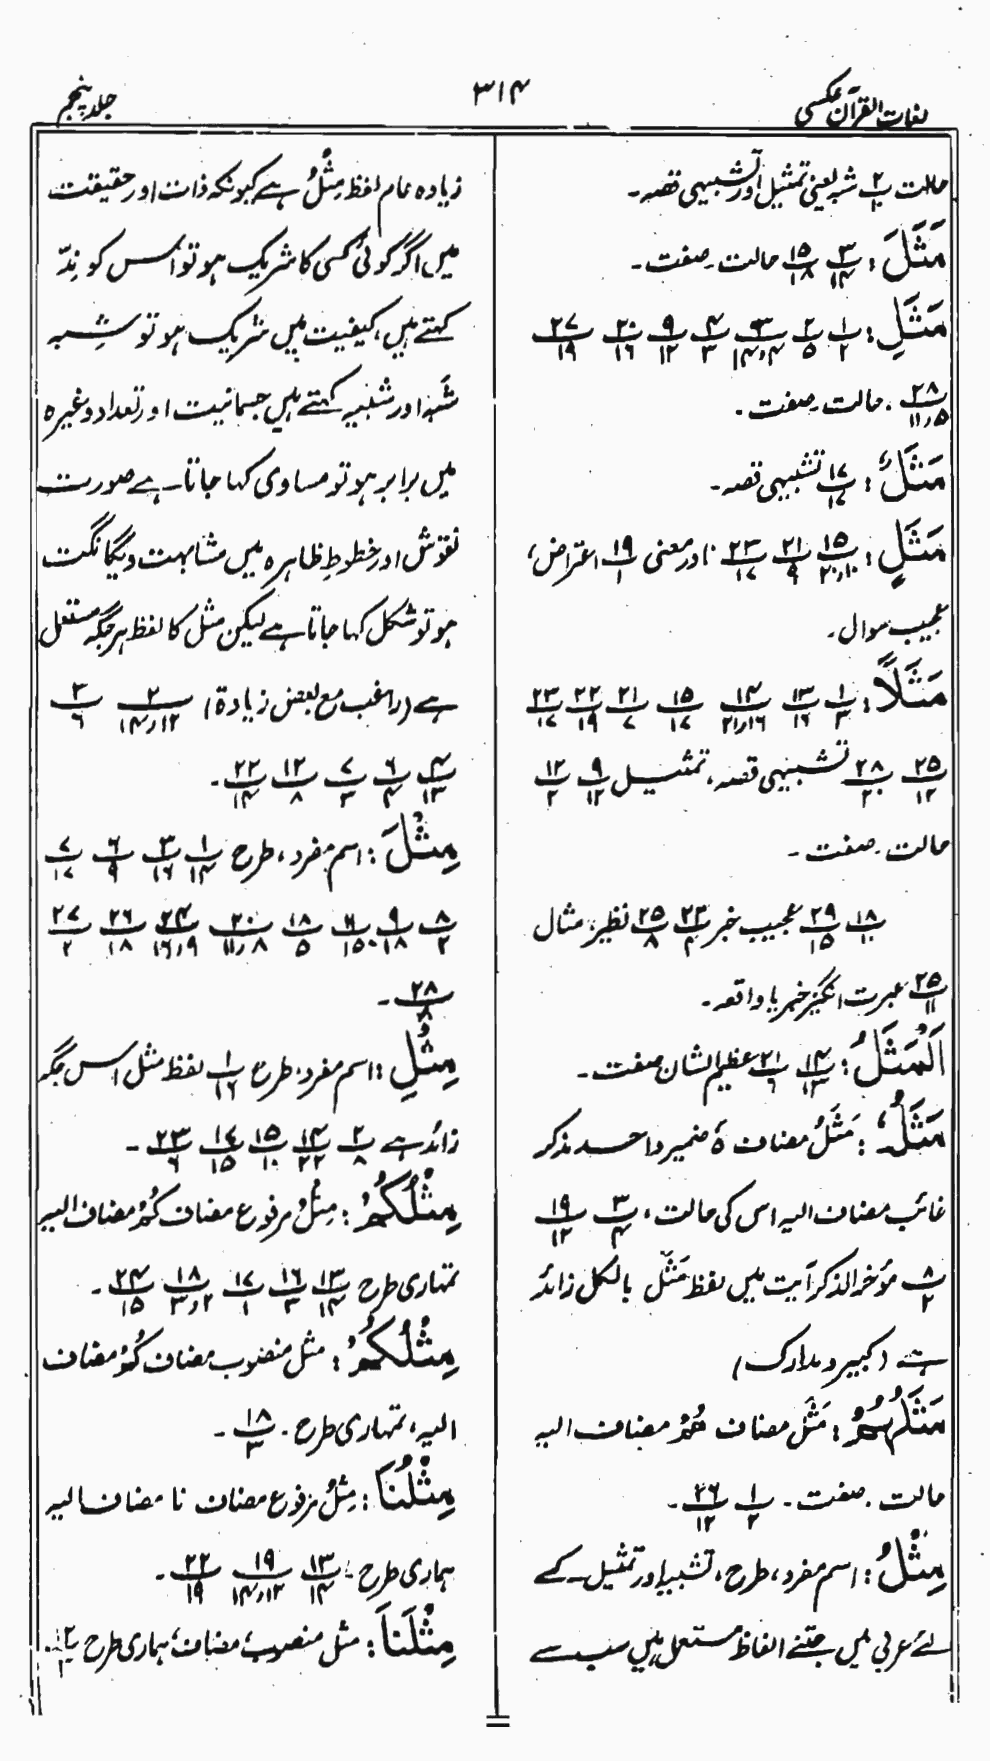 لغات القرآن عکسی
۳۱۴
جلد پنجم
حالت ۲/۱ شبہ یعنی تمثیل اور تشبیہی قصہ۔
مَثَلَ : ۳/۱۴ ۱۵/۱۸ حالت۔ صفت۔
مَثَلِ : ۱/۲ ۲/۵ ۴/۳ ۹/۱۲ ۲۰/۱۶ ۲۷/۱۹
۲۸/۵،۱۱ ۔ حالت۔ صفت ۔
مَثَلُ : ۱۷/۱۷ تشبیہی قصہ۔
مَثَلٍ : ۱۵/۱۰،۲۰ ۲۱/۹ ۲۳/۱۷ نادر معنی ۱۹/۱ اعتراض،
عجیب سوال۔
مَثَلًا : ۱/۳ ۱۳/۱۶ ۱۴/۱۶،۲۱ ۱۵/۱۷ ۲۱/۷ ۲۲/۱۹ ۲۳/۱۷
۲۵/۱۲ ۲۸/۲۰ تشبیہی قصہ، تمثیل ۹/۱۲ ۱۲/۲
حالت ۔ صفت ۔
۱۸/۱۰ ۲۹/۱۵ عجیب خبر ۲۳/۴ ۲۵/۸ نظیر، مثال
۲۵/۱۱ عبرت انگیز خبر یا واقعہ۔
اَلْمَثَلُ : ۱۴/۱۳ ۲۱/۶ عظیم الشان صفت ۔
مَثَلُہٗ : مَثَلُ مضاف ہٗ ضمیر واحد مذکر
غائب مضاف الیہ اس کی حالت، ۳/۴ ۱۹/۱۲
۸/۲ مؤخر الذکر آیت میں لفظ مَثَل بالکل زائد
ہے (کبیر و مدارک)
مَثَلُہُمْ : مَثَلُ مضاف ھُمْ مضاف الیہ
حالت ۔ صفت ۔ ۱/۲ ۲۶/۱۲ ۔
مِثْلُ : اسم مفرد، طرح، تشبیہ اور تمثیل کے
لئے عربی میں جتنے الفاظ مستعمل ہیں سب سے
زیادہ عام لفظ مِثْلُ ہے کیونکہ ذات اور حقیقت
میں اگر کوئی کسی کا شریک ہو تو اس کو نِدّ
کہتے ہیں، کیفیت میں شریک ہو تو شِبہ
شَبَہ اور شبیہ کہتے ہیں جسمانیت اور تعداد وغیرہ
میں برابر ہو تو مساوی کہا جاتا ہے صورت
نقوش اور خطوطِ ظاہرہ میں مشابہت و یگانگت
ہو تو شکل کہا جاتا ہے لیکن مثل کا لفظ ہر جگہ مستعمل
ہے (راغب مع بعض زیادۃ) ۲/۱۲،۱۴ ۳/۶
۴/۱۳ ۶/۴ ۷/۳ ۱۲/۸ ۲۲/۱۴ ۔
مِثْلَ : اسم مفرد، طرح ۱/۱۴ ۳/۱۶ ۶/۹ ۷/۱۷
۸/۲ ۹/۱۸ ۶/۱۵ ۱۸/۵ ۲۰/۸،۱۱ ۲۴/۹،۱۶ ۲۶/۱۸ ۲۷/۲
۲۸/۸ ۔
مِثْلِ : اسم مفرد، طرح ۱/۱۶ لفظ مثل اس جگہ
زائد ہے ۲/۸ ۱۴/۲۲ ۱۵/۱۰ ۱۷/۱۵ ۲۳/۶ ۔
مِثْلُکُمْ : مِثْلُ مرفوع مضاف کُمْ مضاف الیہ
تمہاری طرح ۱۳/۱۴ ۱۶/۳ ۱۷/۱ ۱۸/۲،۳ ۲۴/۱۵ ۔
مِثْلَکُمْ : مثل منصوب مضاف کُمْ مضاف
الیہ، تمہاری طرح ۔ ۱۸/۳ ۔
مِثْلُنَا : مِثْلُ مرفوع مضاف نا مضاف الیہ
ہماری طرح ۔ ۱۳/۱۴ ۱۹/۱۲،۱۴ ۲۲/۱۹ ۔
مِثْلَنَا : مثل منصوب، مضاف، ہماری طرح